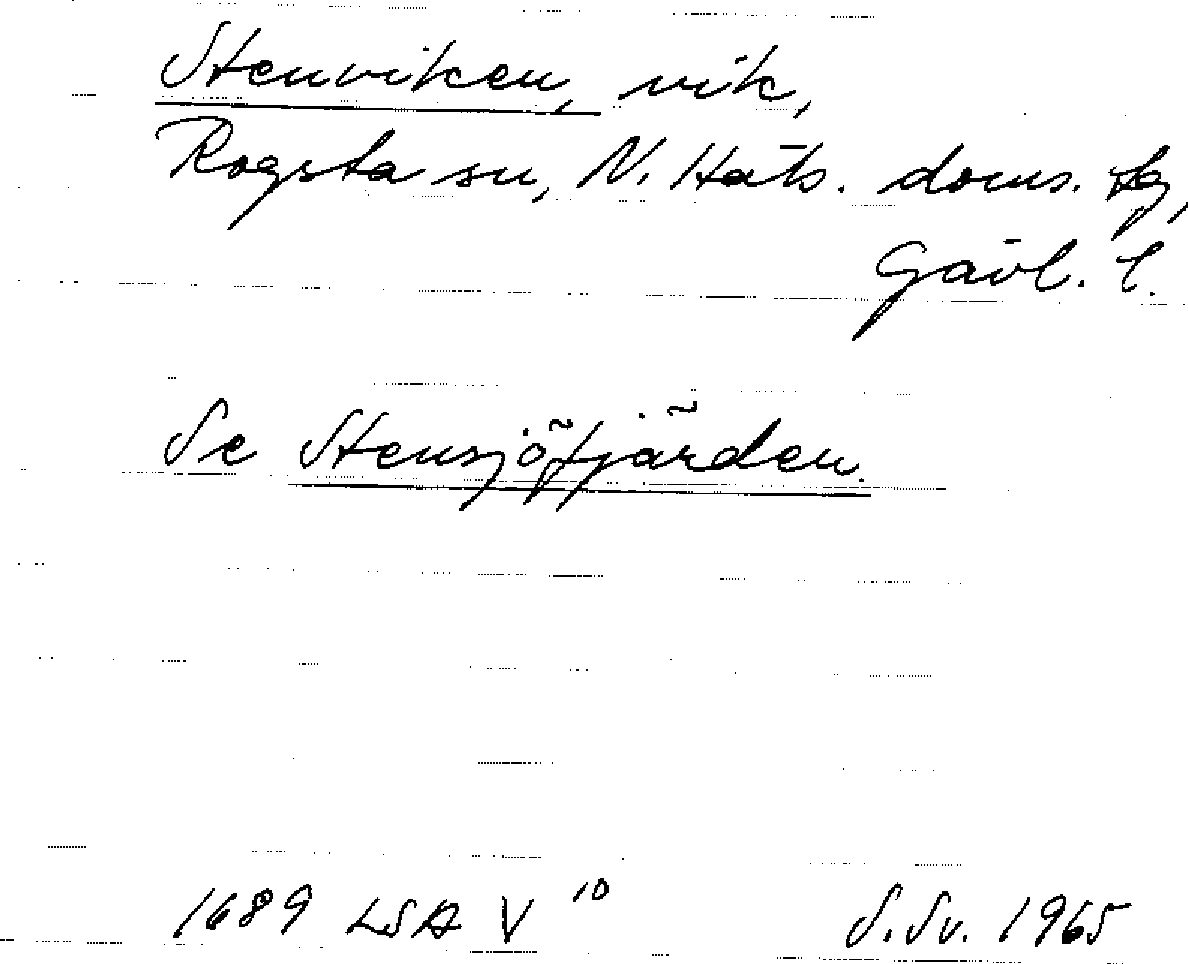 Stenviken, vik,
Rogsta sn, N. Häls. doms. fg,
Gävl. l.
Se Stensjöfjärden.
1689 LSA V 10
S. Sv. 1965